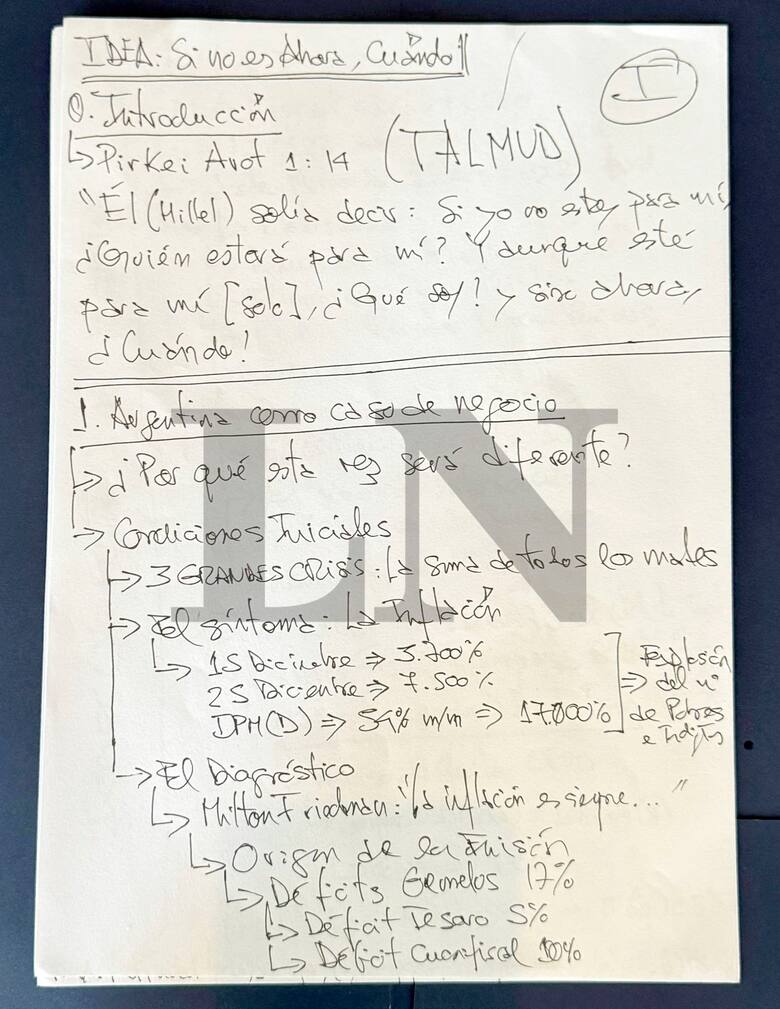 IDEA: Si no es Ahora, Cuándo
I
0. Introducción
↳ Pirkei Avot 1:14 (TALMUD)
"Él (Hillel) solía decir: Si yo no estoy para mí,
¿Quién estará para mí? Y aunque esté
para mí [solo], ¿Qué soy? y si no ahora,
¿Cuándo?
1. Argentina como caso de negocio
→ ¿Por qué esta vez será diferente?
→ Condiciones Iniciales
→ 3 GRANDES CRISIS: La suma de todos los males
→ El síntoma: La Inflación
↳ 1S Diciembre ⇒ 3.700%
2S Diciembre ⇒ 7.500%
IPM(D) ⇒ 54% m/m ⇒ 17.000%
Explosión
⇒ del nº
de Pobres
e Indig
→ El Diagnóstico
↳ Milton Friedman: "La inflación es siempre..."
↳ Origen de la Emisión
↳ Déficits Gemelos 17%
↳ Déficit Tesoro 5%
↳ Déficit Cuasifiscal 10%
LN